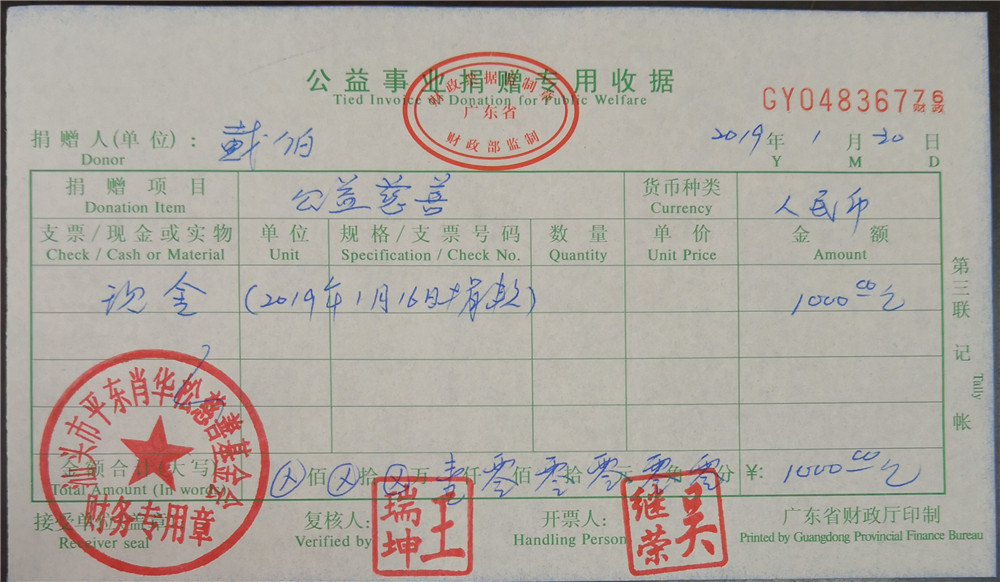 公益事业捐赠专用收据
Tied Invoice of Donation for Public Welfare
财政票据监制章
广东省
财政部监制
GY04836776
财 政
捐赠人(单位): 戴伯
Donor
2019年 1月 20日
Y M D
捐赠项目 公益慈善 货币种类 人民币
Donation Item Currency
支票/现金或实物 单位 规格/支票号码 数量 单价 金额
Check / Cash or Material Unit Specification / Check No. Quantity Unit Price Amount
现金 (2019年1月16日捐款) 1000.00元
第三联 记帐
Tally
金额合计(大写) ⊗佰⊗拾⊗万壹仟零佰零拾零元零角零分 ¥: 1000.00元
Total Amount (In words)
汕头市平东肖华松慈善基金会
财务专用章
接受单位(盖章) 复核人: 王瑞坤 开票人: 吴继荣 广东省财政厅印制
Receiver seal Verified by Handling Person Printed by Guangdong Provincial Finance Bureau